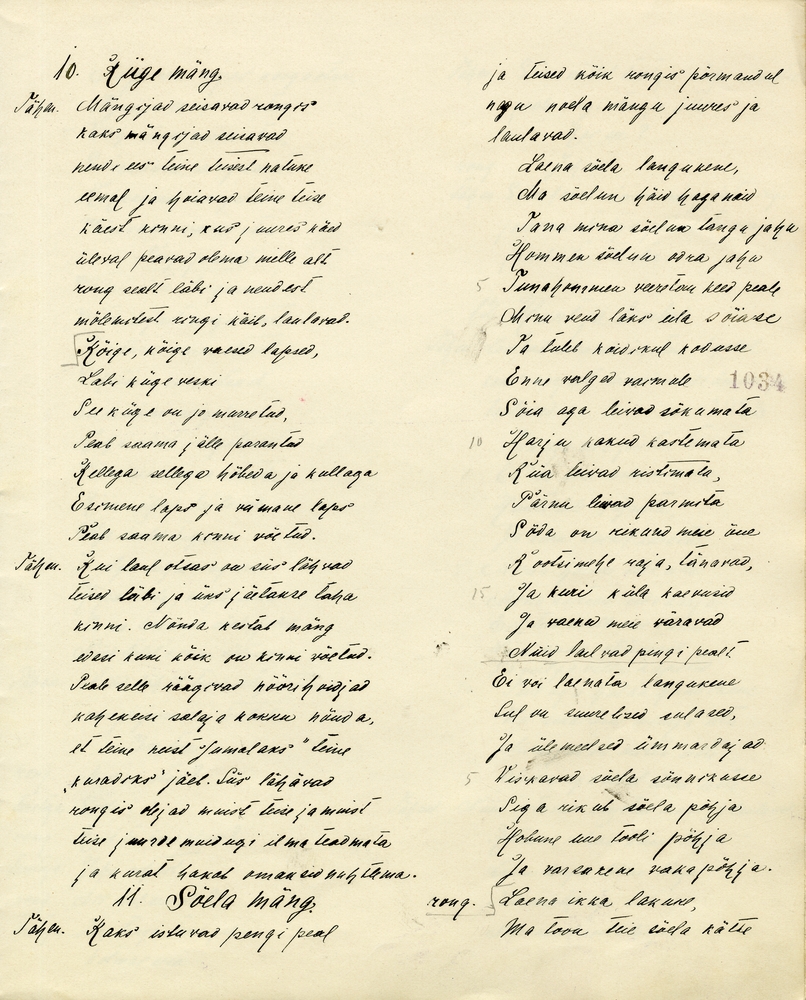 10. Küge mäng.
Tähen. Mängijad seisavad rongis
kaks mängijad seisavad
nende ees teine teisest natuke
eemal ja hoiavad teine teise
käest kinni, kus juures käed
üleval peavad olema mille alt
rong sealt läbi ja nendest
mõlemitest ringi käib, laulavad.
Kõige, kõige vaesed lapsed,
Labi küge veski
See küge on jo murretud,
Peab saama jälle parantud
Kellega sellega hõbeda ja kullaga
Esimene laps ja viimane laps
Peab saama kinni võetud.
Tähen. Kui laul otsas on siis lähvad
teised läbi ja üks jäetakse taha
kinni. Nõnda kestab mäng
edasi kuni kõik on kinni võetud.
Peale selle räägivad nöörihoidjad
kahekeisi salaja kokku nõnda,
et teine neist "Jumalaks" teine
"kuradiks" jäeb. Siis lähävad
rongis olejad muist teise ja muist
teise juurde muidugi ilma teadmata
ja kurat hakab omaksid nuhtlema.
11. Sõela mäng.
Tähen. Kaks istuvad pengi peal
ja teised kõik rongis põrmandul
nagu noela mängu juures ja
laulavad.
Laena sõela langukene,
Ma sõelun häid haganaid
Tana mina sõelun tangu jahu
Hommen sõelun odra jahu
5 Tunahommen veeretan keed peale
Minu vend läks eila sõiase
Ta tuleb koidikul kodusse
Enne valged varmale
1034
Sõia aga leivad sõkumata
10 Harju kakud kastemata
Riia leivad ristimata,
Pärnu leivad parmita
Sõda on rikund meie õue
Rootsimehe raja, tänavad,
15 Ja kuri küla kaevusid
Ja vaenu meie väravad
Nüid lailvad pingi pealt
Ei voi laenata langukene
Sul on suurelised sulased,
Ja ülemeelsed ümmardajad
5 Viskavad sõela sõnnikusse
Siga rikub sõela põhja
Hobune uue tooli põhja
Ja varsakene vaka põhja.
rong. Laena ikka lakune,
Ma toon teie sõela kätte